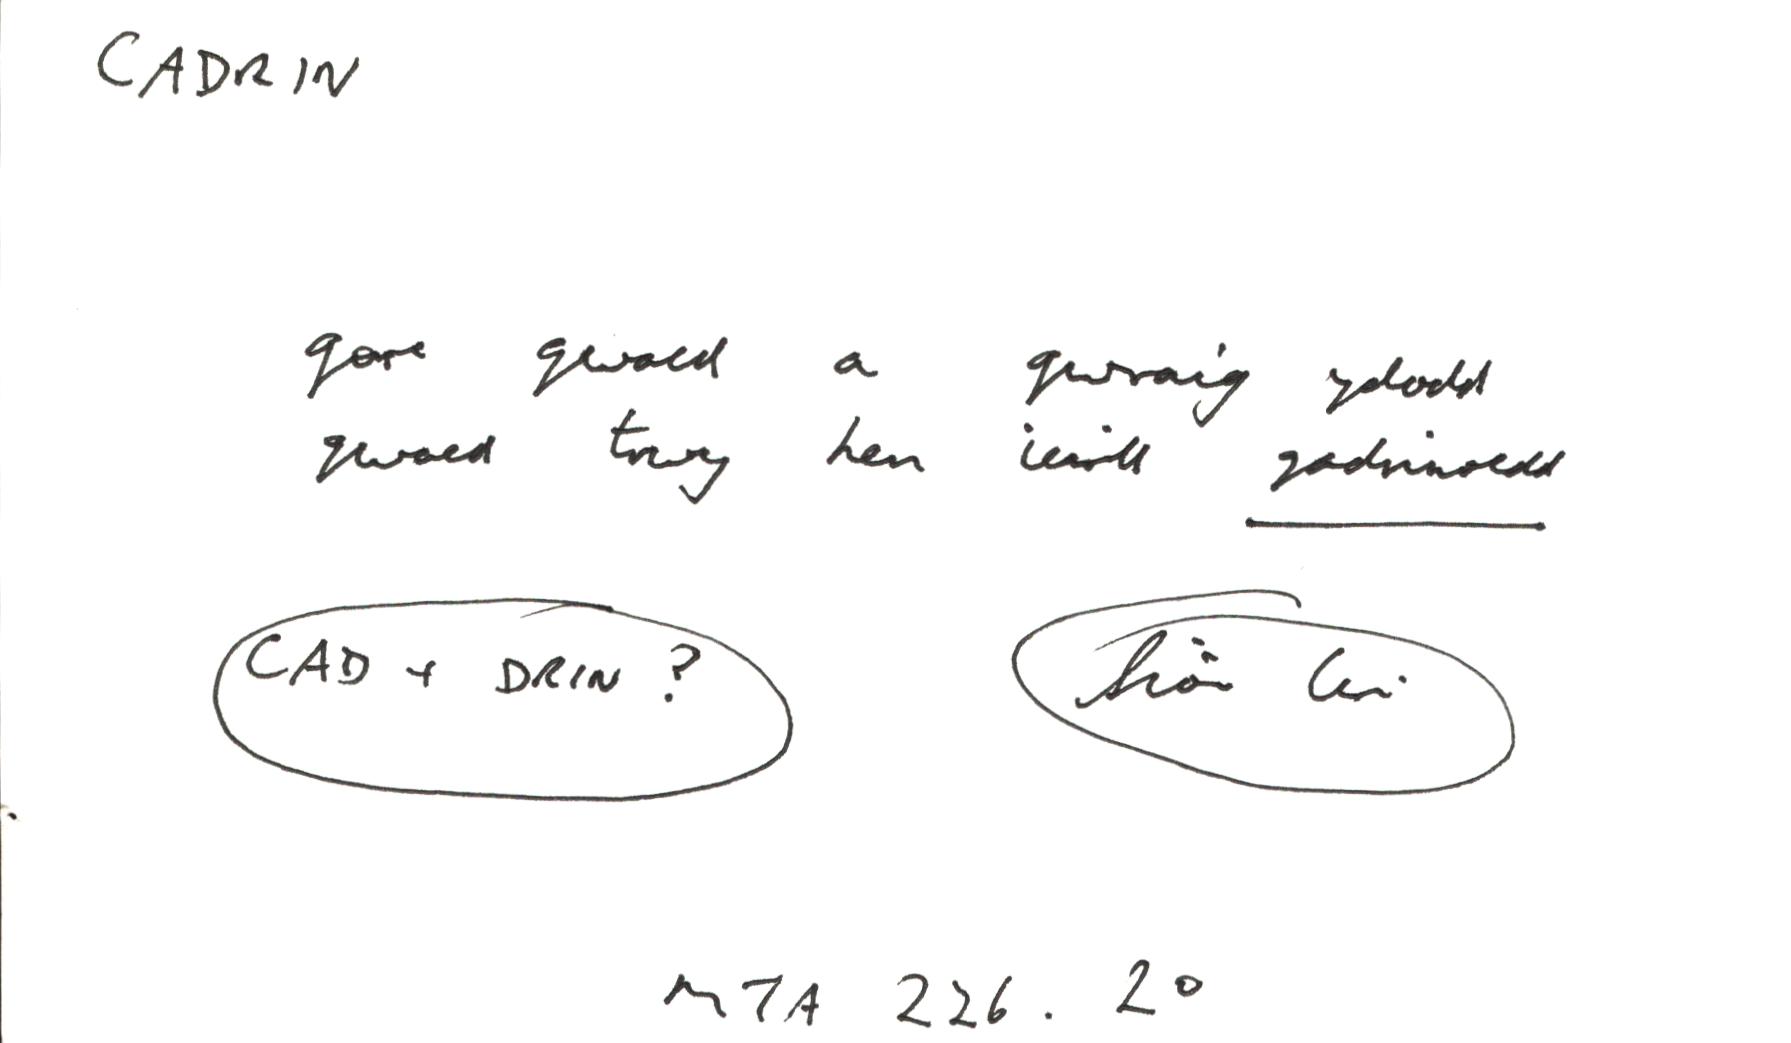 CADRIN
gore gwaed a gwraig ydodd
gwaed trwy hen ieirll gadrinoedd
CAD + DRIN ? Siôn Ceri
MTA 226. 20